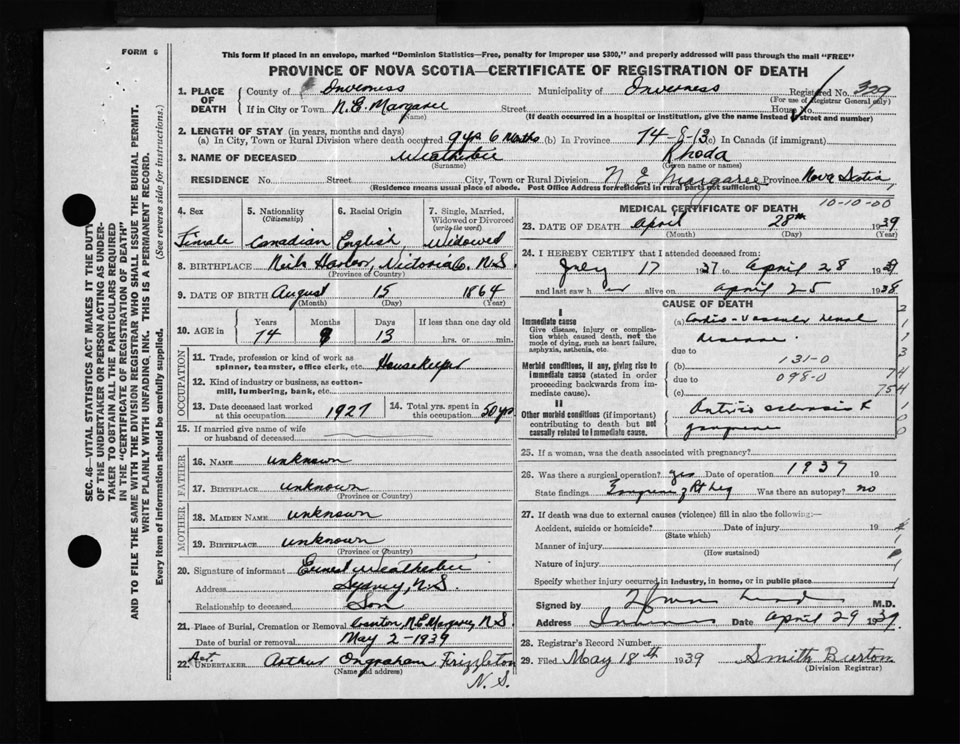 FORM 6
This form if placed in an envelope, marked "Dominion Statistics—Free, penalty for improper use $300," and properly addressed will pass through the mail "FREE"
PROVINCE OF NOVA SCOTIA—CERTIFICATE OF REGISTRATION OF DEATH
1. PLACE OF DEATH County of Inverness Municipality of Inverness Registered No. 329
(For use of Registrar General only)
If in City or Town N.E. Margaree Street House No.
(Name) (If death occurred in a hospital or institution, give the name instead of street and number)
2. LENGTH OF STAY (in years, months and days)
(a) In City, Town or Rural Division where death occurred 9 yrs 6 Months (b) In Province 74-8-13 (c) In Canada (if immigrant)
3. NAME OF DECEASED Weatherbee Rhoda
(Surname) (Given name or names)
RESIDENCE No. Street City, Town or Rural Division N E Margaree Province Nova Scotia
(Residence means usual place of abode. Post Office Address for residents in rural parts not sufficient)
4. Sex 5. Nationality 6. Racial Origin 7. Single, Married, Widowed or Divorced
(Citizenship) (write the word)
Female Canadian English Widowed
8. BIRTHPLACE Neils Harbor, Victoria Co. N.S.
(Province of Country)
9. DATE OF BIRTH August 15 1864
(Month) (Day) (Year)
10. AGE in Years Months Days If less than one day old
74 8 13 hrs. or min.
OCCUPATION
11. Trade, profession or kind of work as spinner, teamster, office clerk, etc. Housekeeper
12. Kind of industry or business, as cotton-mill, lumbering, bank, etc.
13. Date deceased last worked at this occupation 1927 14. Total yrs. spent in this occupation 50 yrs.
15. If married give name of wife or husband of deceased
FATHER
16. NAME unknown
17. BIRTHPLACE unknown
(Province or Country)
MOTHER
18. MAIDEN NAME unknown
19. BIRTHPLACE unknown
(Province or Country)
20. Signature of informant Ernest Weatherbee
Address Sydney, N.S.
Relationship to deceased Son
21. Place of Burial, Cremation or Removal N.E. Margaree, N.S.
Date of burial or removal May 2-1939
22. Act. UNDERTAKER Arthur Ingraham Frizzleton
(Name and address)
N.S.
MEDICAL CERTIFICATE OF DEATH 10-10-00
23. DATE OF DEATH April 28th 1939
(Month) (Day) (Year)
24. I HEREBY CERTIFY that I attended deceased from:
July 17 1937 to April 28 1939
and last saw her alive on April 25 1938
CAUSE OF DEATH
I
Immediate cause (a) Cardio-vascular renal
Give disease, injury or complication which caused death, not the mode of dying, such as heart failure, asphyxia, asthenia, etc.
disease.
due to
131-0
Morbid conditions, if any, giving rise to immediate cause (stated in order proceeding backwards from immediate cause).
due to 098-0
(c)
II
Other morbid conditions (if important) contributing to death but not causally related to immediate cause.
Arterio sclerosis &
gangrene
25. If a woman, was the death associated with pregnancy?
26. Was there a surgical operation? yes Date of operation 1937 19
State findings Gangrene of Rt leg Was there an autopsy? no
27. If death was due to external causes (violence) fill in also the following:—
Accident, suicide or homicide? Date of injury 19
(State which)
Manner of injury
(How sustained)
Nature of injury
Specify whether injury occurred in industry, in home, or in public place
Signed by M.D.
Address Date April 29 1939.
28. Registrar's Record Number
29. Filed May 18th 1939 Smith Burton
(Division Registrar)
SEC. 46—VITAL STATISTICS ACT MAKES IT THE DUTY
OF THE UNDERTAKER OR PERSON ACTING AS UNDER-
TAKER TO OBTAIN ALL THE PARTICULARS REQUIRED
IN THE "CERTIFICATE OF REGISTRATION OF DEATH"
AND TO FILE THE SAME WITH THE DIVISION REGISTRAR WHO SHALL ISSUE THE BURIAL PERMIT.
WRITE PLAINLY WITH UNFADING, INK. THIS IS A PERMANENT RECORD.
Every item of information should be carefully supplied. (See reverse side for instructions.)